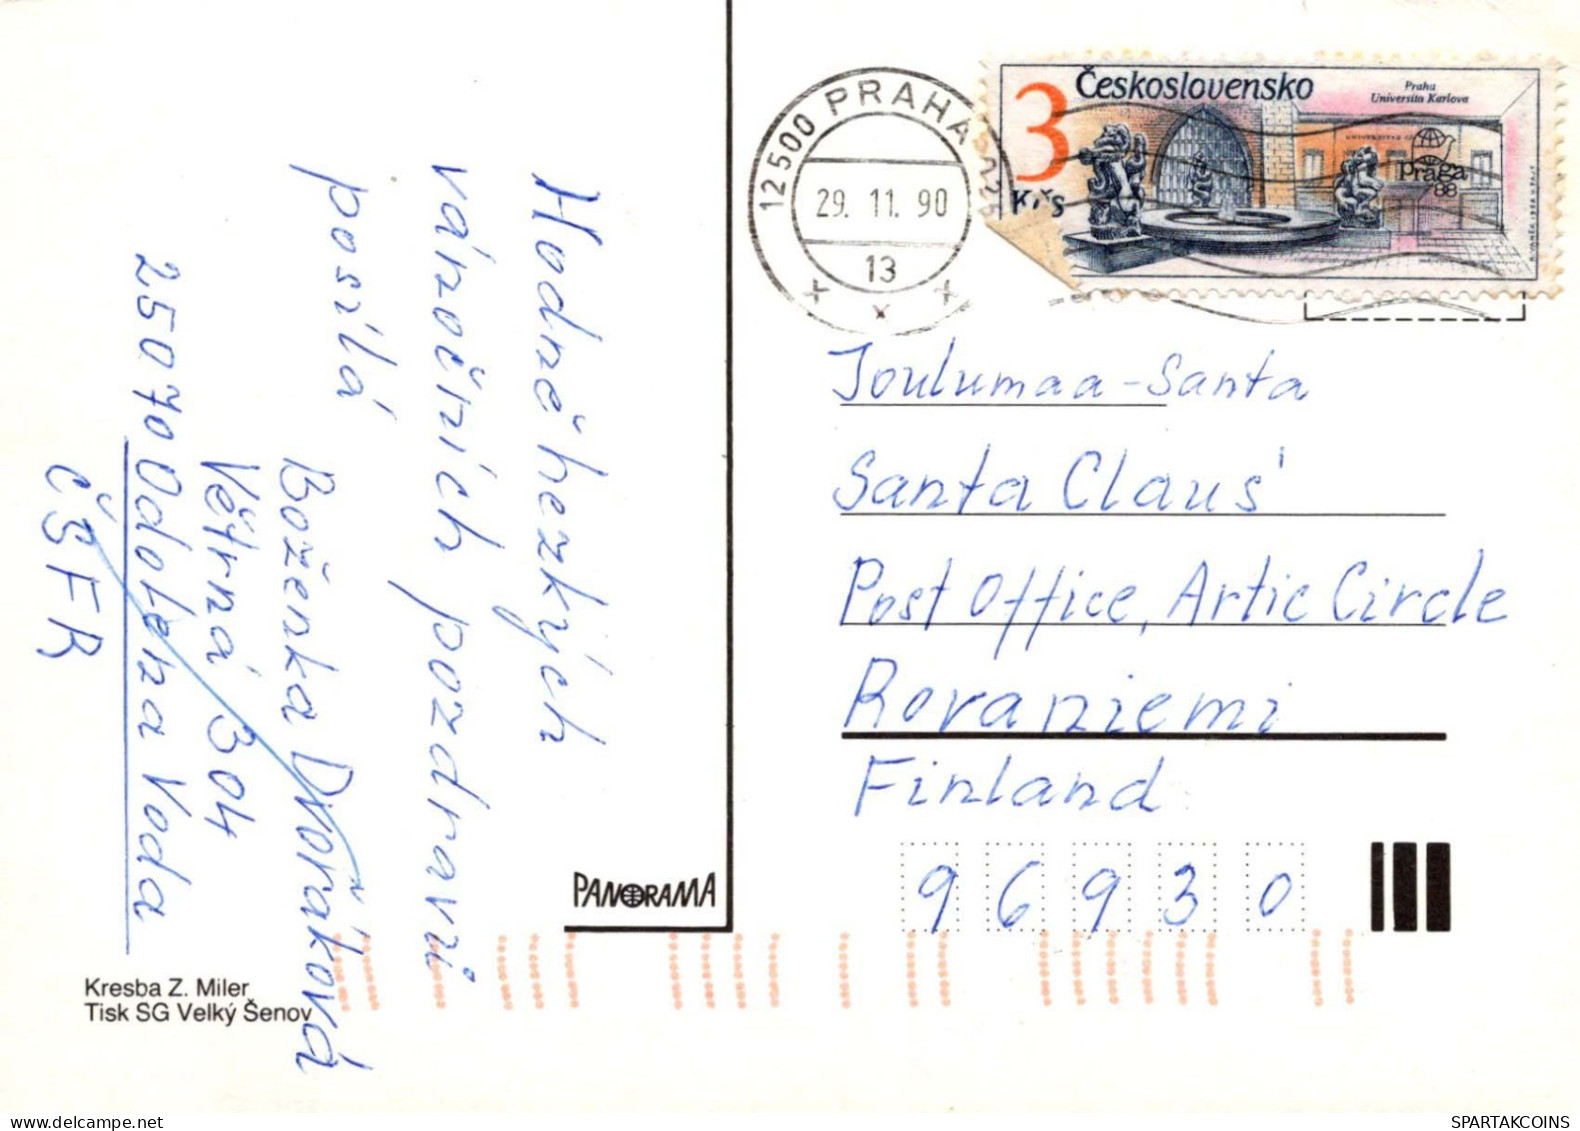 Hodně hezkých
vánočních pozdravů
posílá
Boženka Dvořáková
Větrná 304
25070 Odolena Voda
ČSFR
PANORAMA
Kresba Z. Miler
Tisk SG Velký Šenov
12500 PRAHA
29. 11. 90
13
3
Kčs
Československo
Praha
Universita Karlova
praga
88
Joulumaa - Santa
Santa Claus'
Post Office, Artic Circle
Rovaniemi
Finland
96930
delcampe.net
SPARTAKCOINS